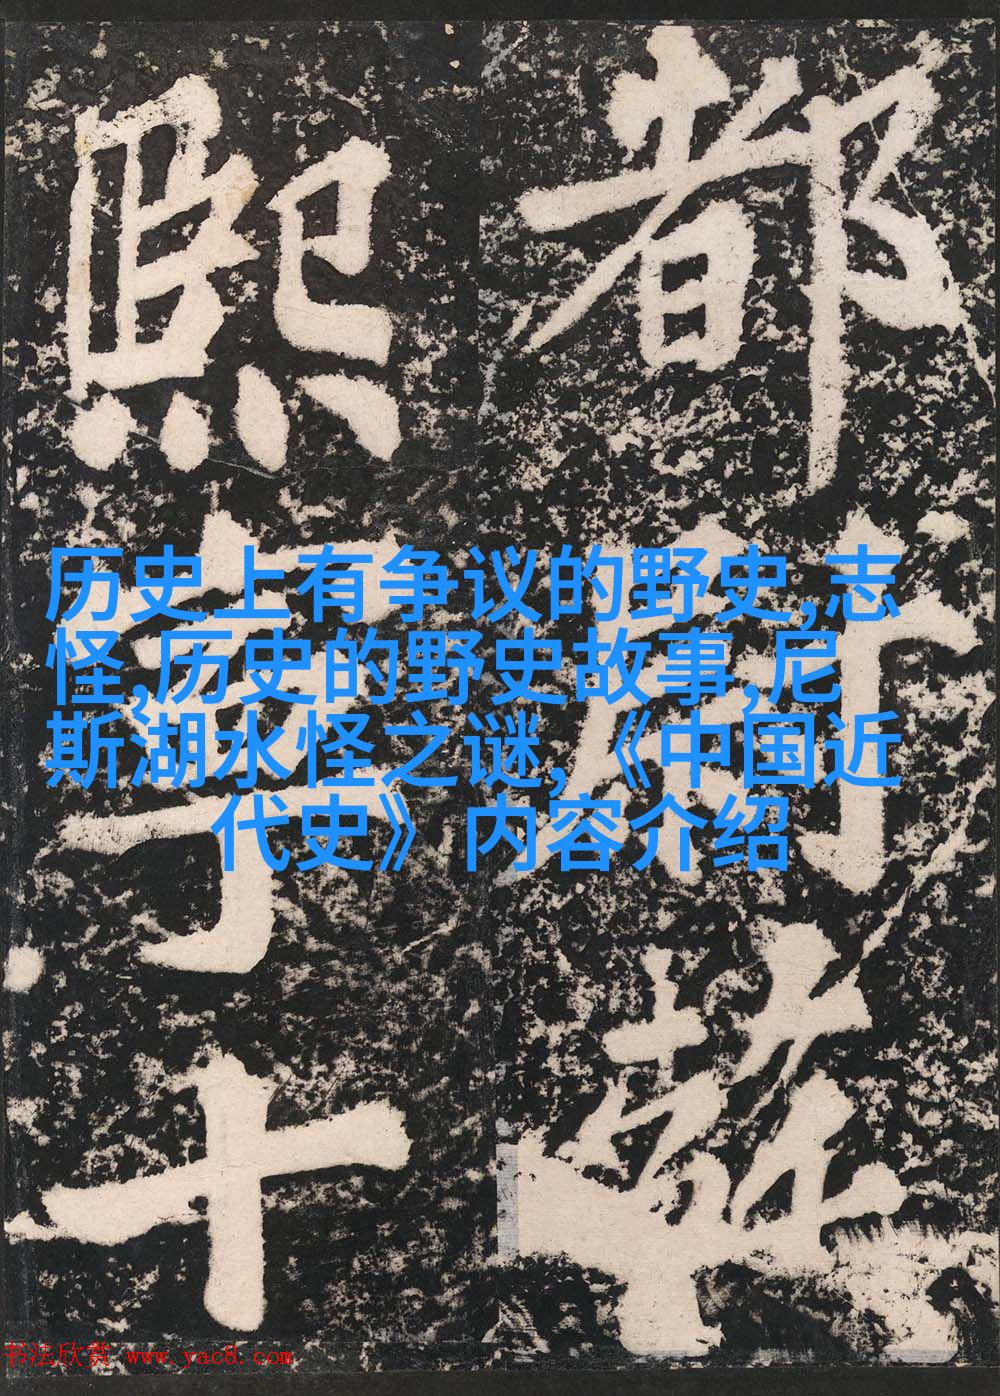 都
熙
十
历史上有争议的野史,志
怪,历史的野史故事,尼
斯湖水怪之谜,《中国近
代史》内容介绍
书法欣赏 www.yac8.com